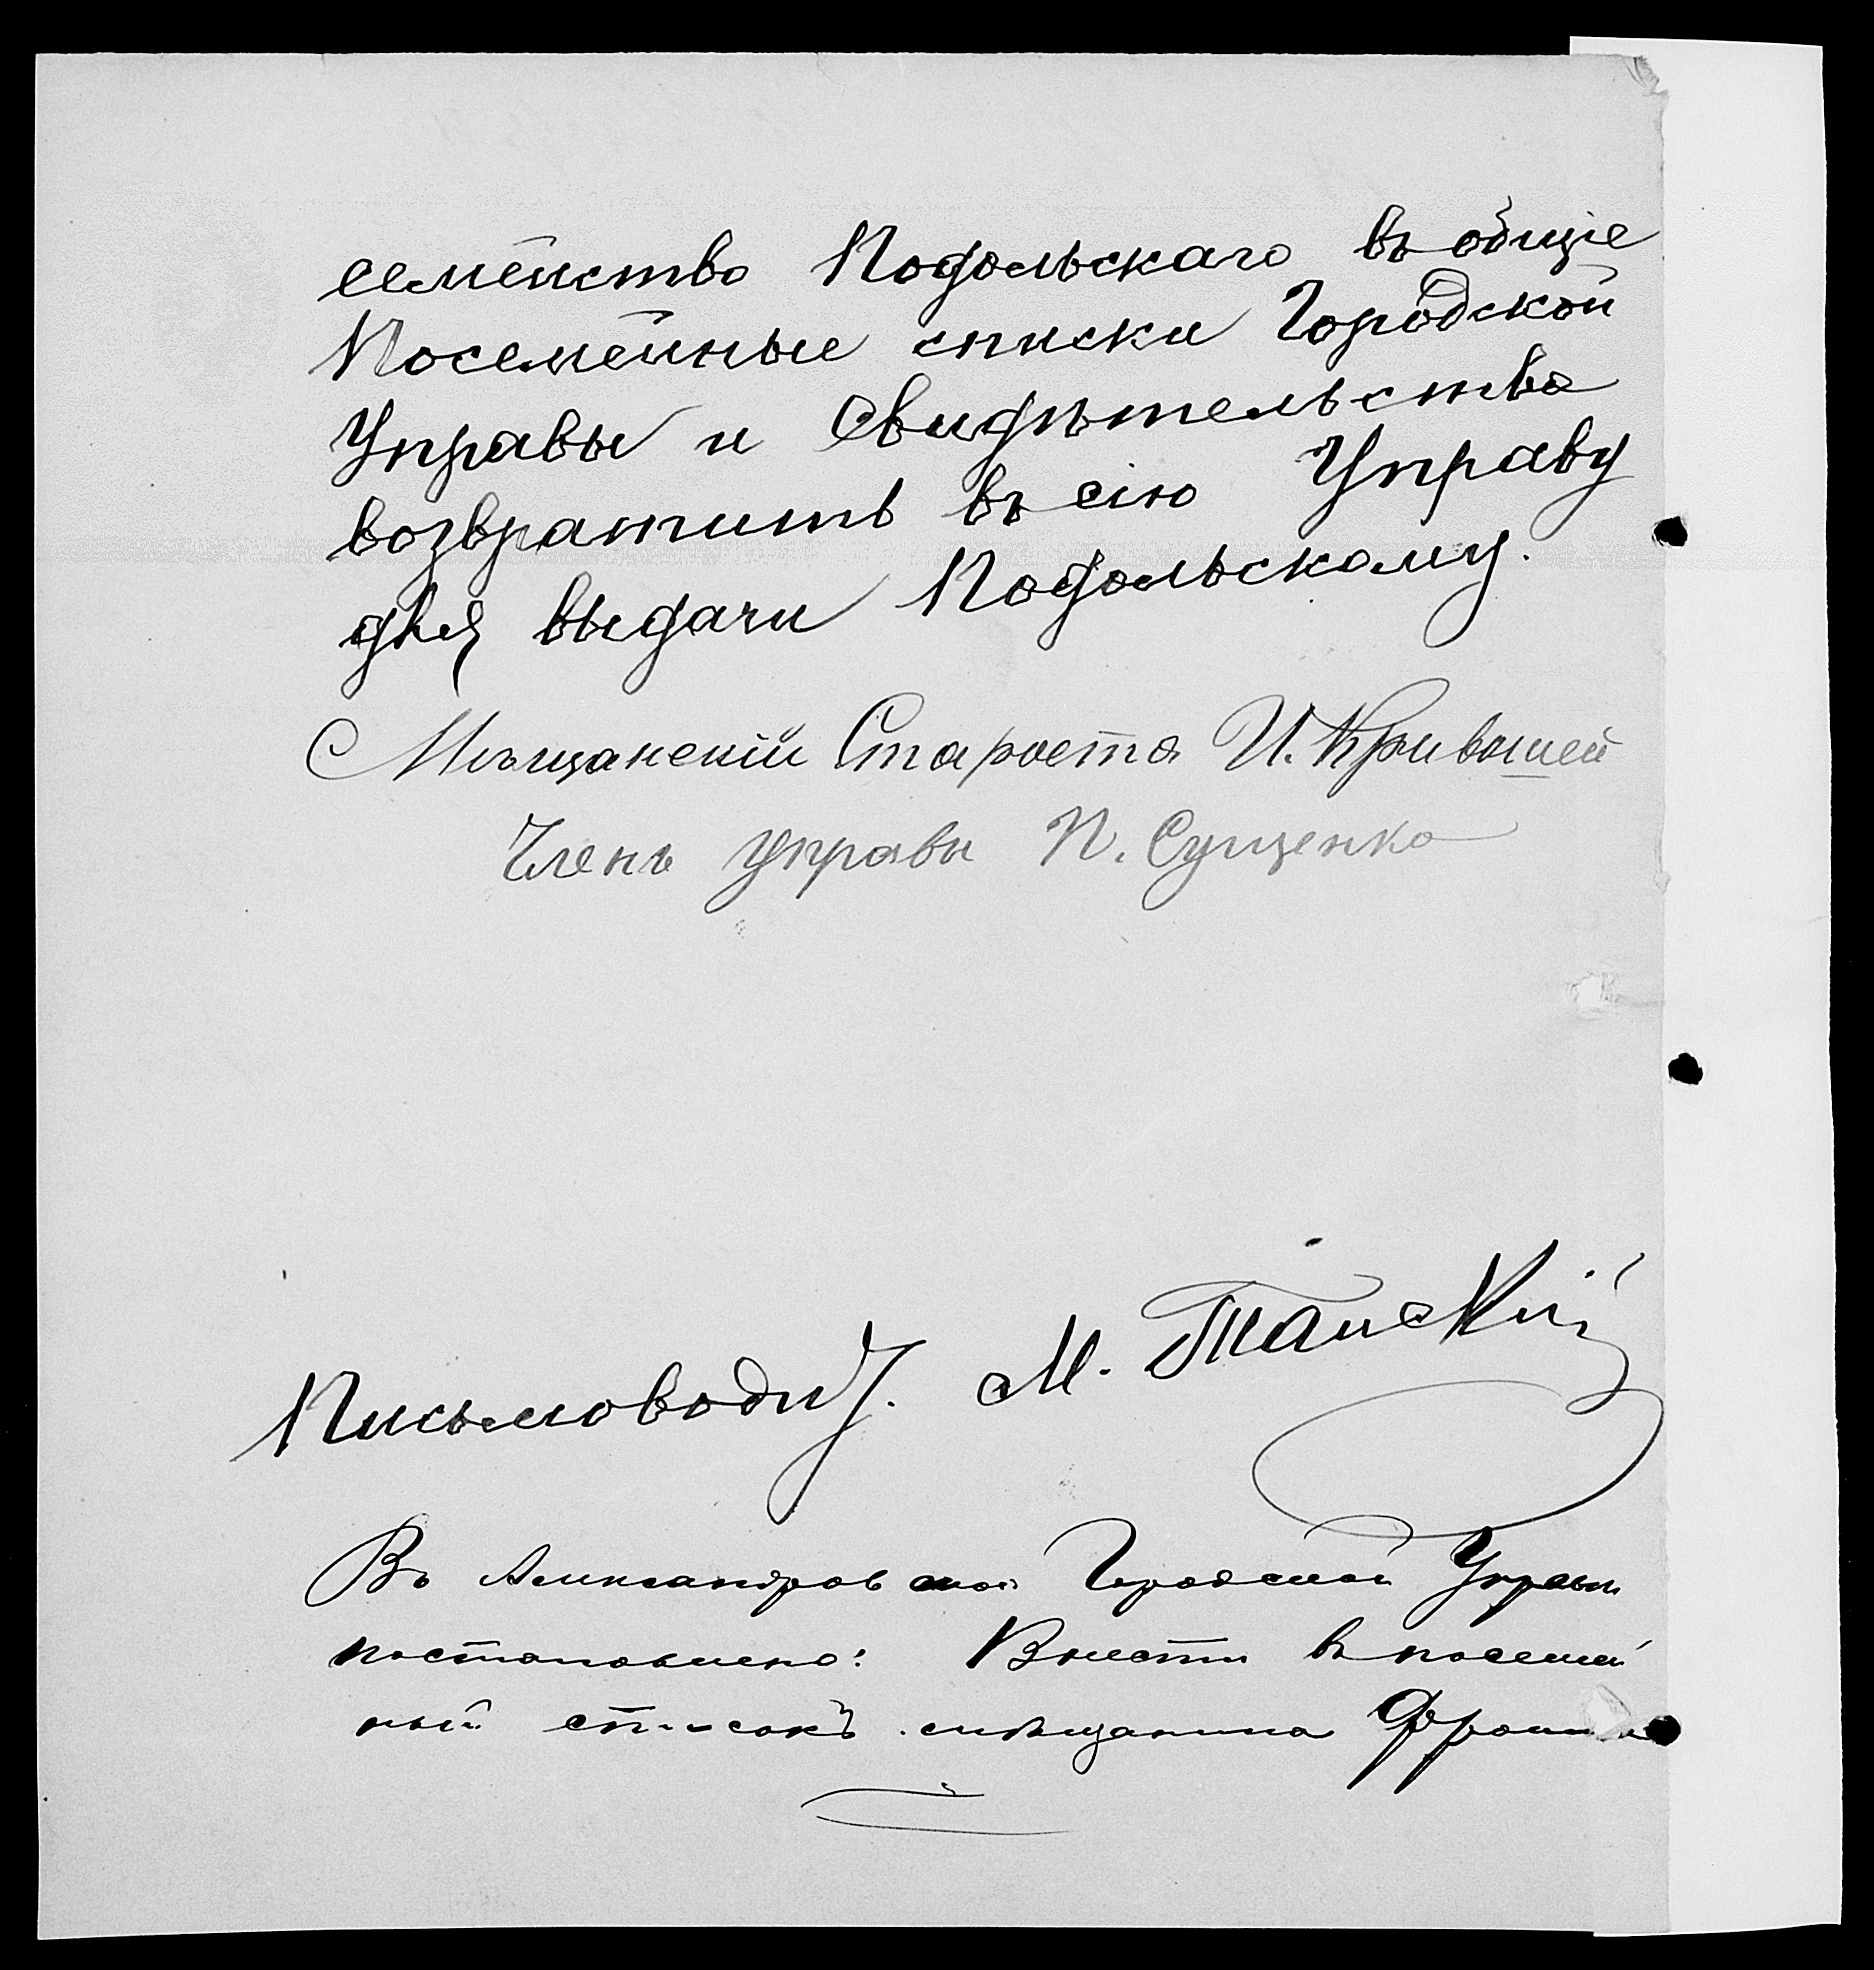 семейство Подольскаго въ общіе
Посемейные списки Городской
Управы и Свидѣтельства
возвратить въ сію Управу
для выдачи Подольскому.
Мѣщанскій Староста И. Кривошей
Членъ Управы П. Сущенко
Письмовод. М. Танскій
Въ Александровской Городской Управѣ
постановлено: Внести въ посемей
ный списокъ мѣщанина